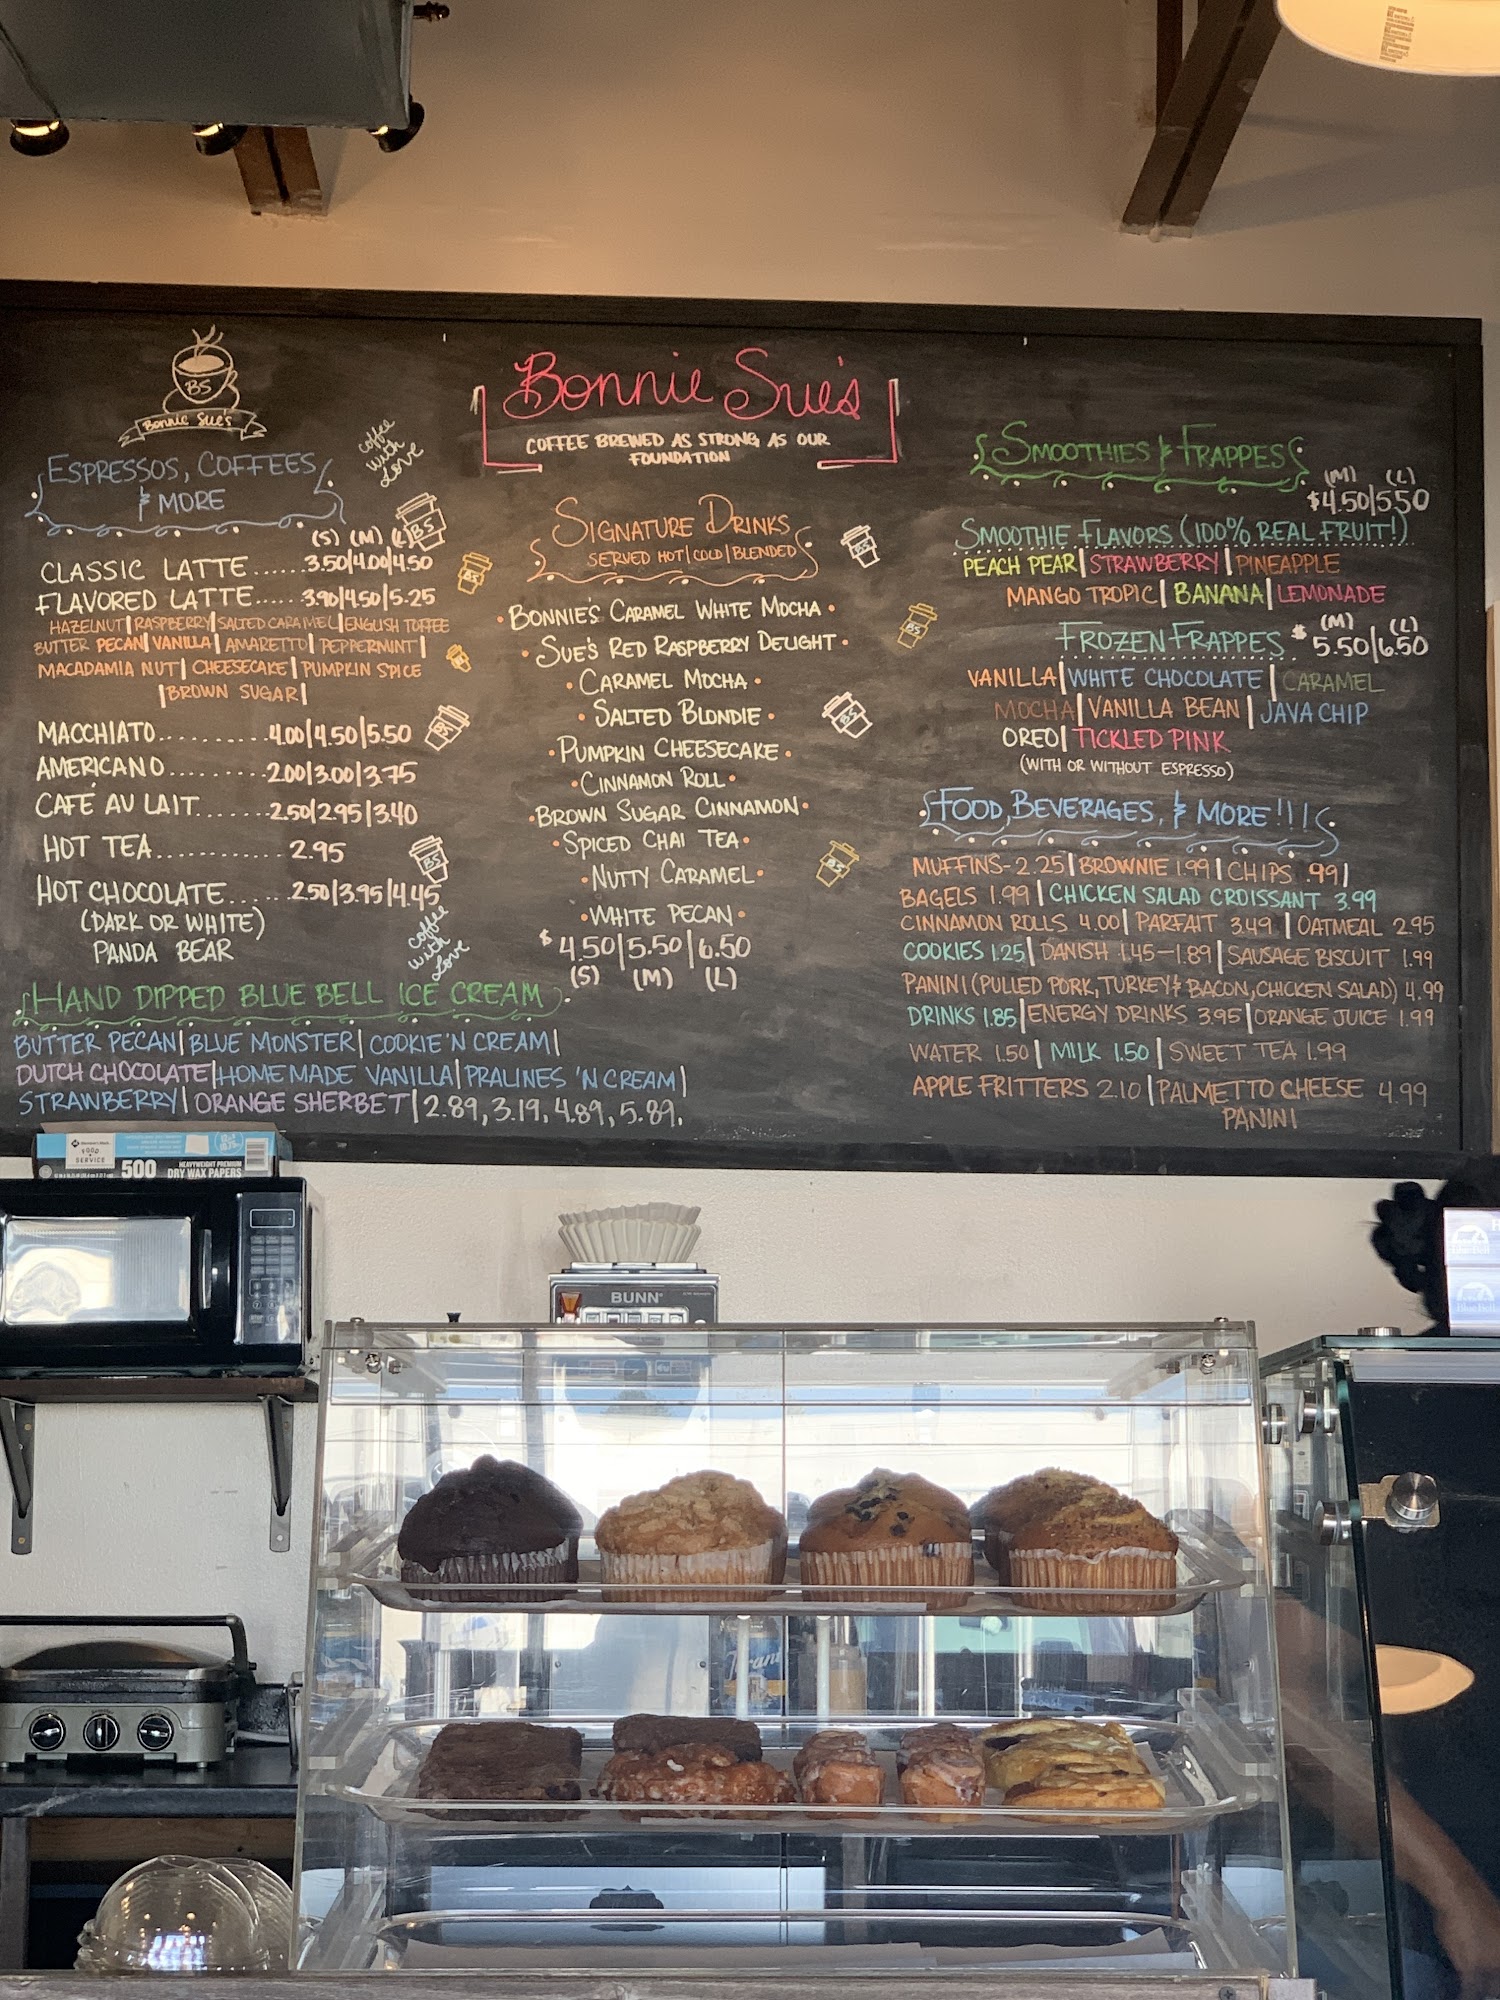 BS
Bonnie Sue's
coffee
with
Love
Bonnie Sue's
COFFEE BREWED AS STRONG AS OUR
FOUNDATION
ESPRESSOS, COFFEES
& MORE
(S) (M) (L)
CLASSIC LATTE......3.50|4.00|4.50
FLAVORED LATTE.....3.90|4.50|5.25
HAZELNUT|RASPBERRY|SALTED CARAMEL|ENGLISH TOFFEE
BUTTER PECAN|VANILLA|AMARETTO|PEPPERMINT|
MACADAMIA NUT|CHEESECAKE|PUMPKIN SPICE
|BROWN SUGAR|
MACCHIATO..........4.00|4.50|5.50
AMERICANO.........2.00|3.00|3.75
CAFÉ AU LAIT.......2.50|2.95|3.40
HOT TEA............2.95
HOT CHOCOLATE......2.50|3.95|4.45
(DARK OR WHITE)
PANDA BEAR
coffee
with
Love
HAND DIPPED BLUE BELL ICE CREAM
BUTTER PECAN|BLUE MONSTER|COOKIE 'N CREAM|
DUTCH CHOCOLATE|HOMEMADE VANILLA|PRALINES 'N CREAM|
STRAWBERRY|ORANGE SHERBET|2.89, 3.19, 4.89, 5.89.
SIGNATURE DRINKS
SERVED HOT|COLD|BLENDED
• BONNIE'S CARAMEL WHITE MOCHA •
• SUE'S RED RASPBERRY DELIGHT •
• CARAMEL MOCHA •
• SALTED BLONDIE •
• PUMPKIN CHEESECAKE •
• CINNAMON ROLL •
• BROWN SUGAR CINNAMON •
• SPICED CHAI TEA •
• NUTTY CARAMEL •
• WHITE PECAN •
$4.50|5.50|6.50
(S) (M) (L)
BS
BS
BS
BS
BS
BS
BS
BS
SMOOTHIES & FRAPPES
(M) (L)
$4.50|5.50
SMOOTHIE FLAVORS (100% REAL FRUIT!)
PEACH PEAR|STRAWBERRY|PINEAPPLE
MANGO TROPIC|BANANA|LEMONADE
(M) (L)
FROZEN FRAPPES $5.50|6.50
VANILLA|WHITE CHOCOLATE|CARAMEL
MOCHA|VANILLA BEAN|JAVA CHIP
OREO|TICKLED PINK
(WITH OR WITHOUT ESPRESSO)
FOOD, BEVERAGES, & MORE!!!
MUFFINS-2.25|BROWNIE 1.99|CHIPS .99|
BAGELS 1.99|CHICKEN SALAD CROISSANT 3.99
CINNAMON ROLLS 4.00|PARFAIT 3.49|OATMEAL 2.95
COOKIES 1.25|DANISH 1.45-1.89|SAUSAGE BISCUIT 1.99
PANINI (PULLED PORK, TURKEY & BACON, CHICKEN SALAD) 4.99
DRINKS 1.85|ENERGY DRINKS 3.95|ORANGE JUICE 1.99
WATER 1.50|MILK 1.50|SWEET TEA 1.99
APPLE FRITTERS 2.10|PALMETTO CHEESE 4.99
PANINI
FOOD
SERVICE
500
HEAVYWEIGHT PREMIUM
DRY WAX PAPERS
BUNN
Blue Bell